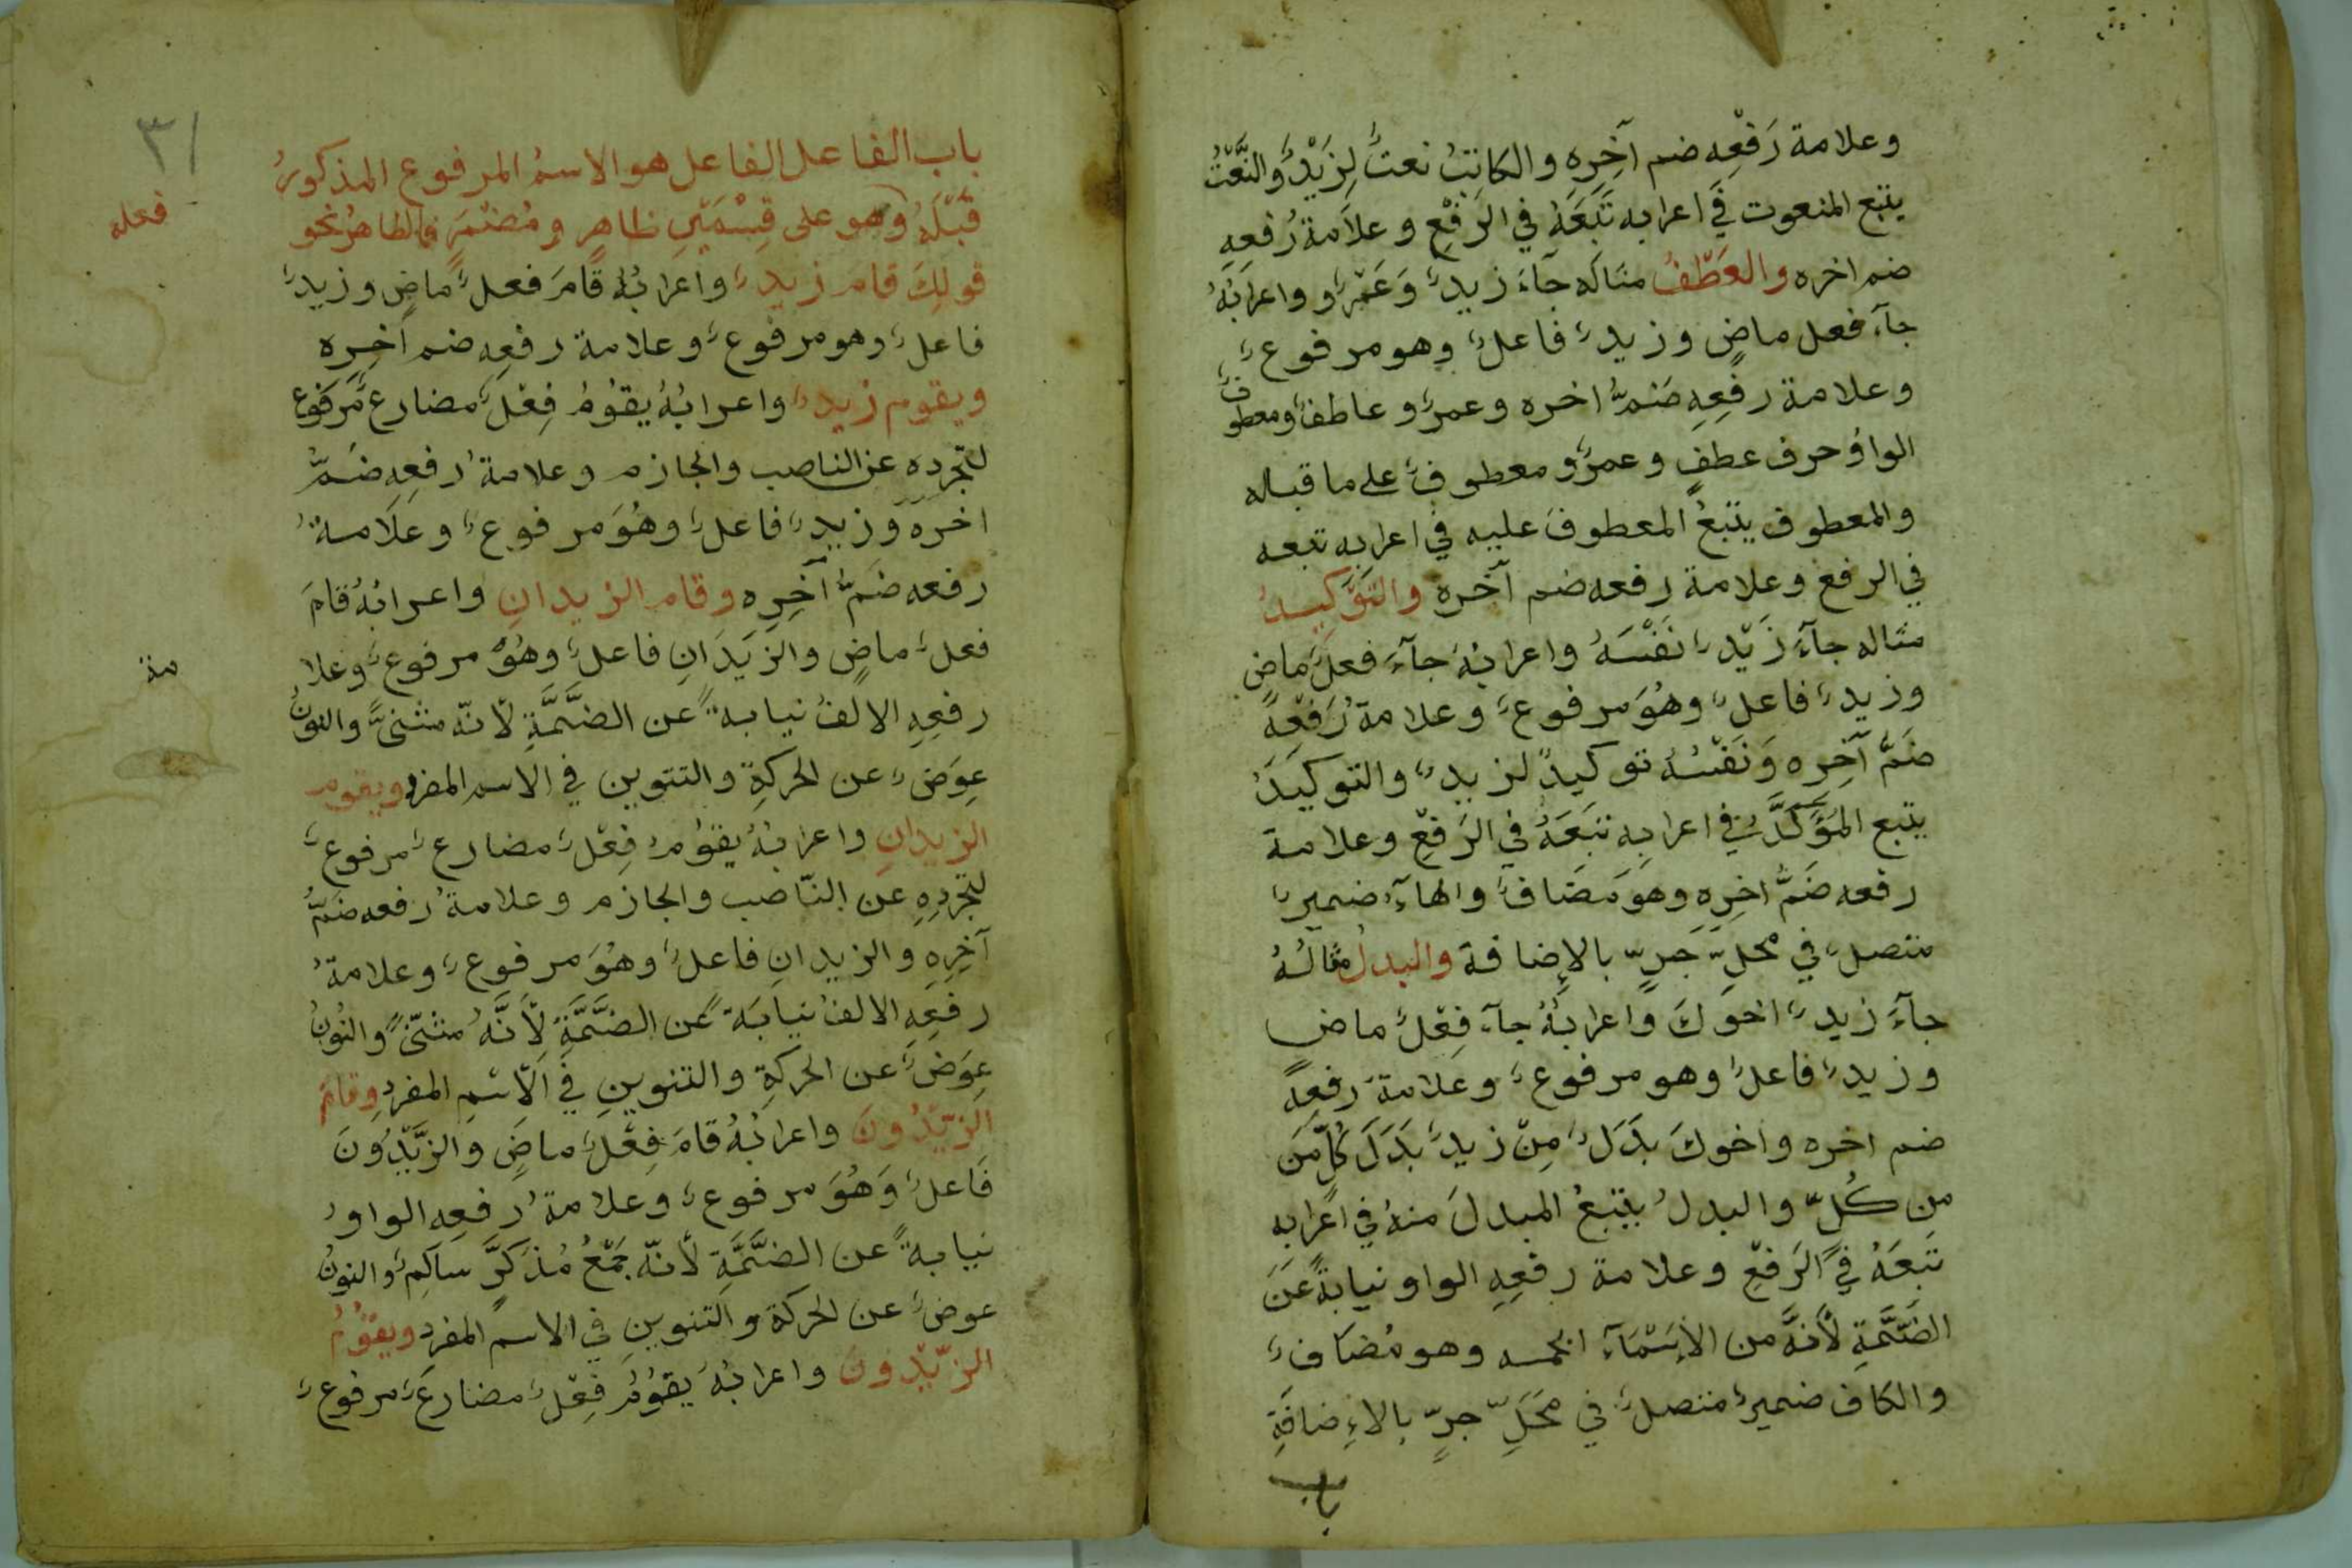 وعلامة رَفْعِهِ ضم آخِرِه والكاتِبُ نعتٌ لِزَيْدٍ والنَّعْتُ
يتبع المنعوت في اعرابه تَبَعَهُ في الرَفْعِ وعلاَمة رَفعِهِ
ضم اخره والعَطْفُ مثاله جآءَ زيدٌ وَعَمْرٌو واعرابُهُ
جآءَ فعل ماضٍ وزيدٌ فاعلٌ وهو مرفوعٌ
وعلامة رفعِهِ ضَمُّ اخره وعمرٌو عاطفٌ ومعطوفٌ
الواوُ حرف عطفٍ وعمرٌو معطوفٌ على ما قبله
والمعطوف يتبعُ المعطوفَ عليه في اعرابِه تبعه
في الرفع وعلامة رفعه ضم آخره والتَّوْكيدُ
مثاله جآءَ زَيْدٌ نَفْسَهُ واعرابُهُ جآءَ فعلٌ ماضٍ
وزيدٌ فاعلٌ وهُوَ مرفوعٌ وعلامةُ رَفْعِهِ
ضَمُّ آخِرِه وَنَفْسُهُ توكيدٌ لزيدٍ والتوكيدُ
يتبع المُؤَكَّدَ في اعرابِهِ تَبَعَهُ في الرَفْعِ وعلامة
رفعه ضَمُّ اخِرِهِ وهوَ مُضَافٌ والهآءُ ضميرٌ
متصلٌ في محلِّ جَرٍّ بالإِضافة والبدلُ مثالُهُ
جآءَ زيدٌ اخوكَ واعرابُهُ جآءَ فِعْلٌ ماض
وزيدٌ فاعلٌ وهو مرفوعٌ وعلامةُ رفعِهِ
ضم اخره واخوكَ بَدَلٌ مِنْ زيدٍ بَدَلَ كُلٍّ مِن
من كُلٍّ والبدلُ يتبعُ المبدلَ منهُ في اعرابه
تَبِعَهُ في الرَفْعِ وعلامة رفعِهِ الواو نيابةً عَنِ
الضَّمَّةِ لأنَّهُ من الأسْمَآءِ الخمسه وهو مُضافٌ
والكاف ضميرٌ متصلٌ في مَحَلِّ جرٍّ بالاءِضافَةِ
باب
٣١
باب الفاعل الفاعل هو الاسمُ المرفوع المذكورُ
قَبْلَهُ وهو على قِسْمَيْنِ ظاهرٍ ومُضْمَرٍ فالظاهرُ نحو
فعله
قولِكَ قام زيدٌ واعرابُهُ قامَ فعلٌ ماضٍ وزيدٌ
فاعلٌ وهو مرفوعٌ وعلامة رفعِهِ ضم آخِرِه
ويقوم زيدٌ واعرابُهُ يقُومُ فِعْلٌ مضارعٌ مرفوع
لتجرده عن الناصب والجازم وعلامةُ رفعِهِ ضَمُّ
اخره وزيدٌ فاعلٌ وهُوَ مرفوعٌ وعلامةُ
رفعه ضَمُّ آخِرِه وقام الزيدانِ واعرابُهُ قامَ
فعلٌ ماضٍ والزيدَانِ فاعلٌ وهُوَ مرفوعٌ وعلا
مة
رفعِهِ الالفُ نيابةً عن الضَّمَّةِ لأنّه مثنىً والنونُ
عِوَضٌ عن الحركةِ والتنوين في الاسم المفردِ ويقوم
الزيدانِ واعرابُهُ يقُومُ فِعْلٌ مضارعٌ مرفوعٌ
لتجردِهِ عن النّاصب والجازم وعلامةُ رفعه ضَمُّ
آخِرِهِ والزيدانِ فاعلٌ وهُوَ مرفوعٌ وعلامةُ
رفعِهِ الالفُ نيابَةً عن الضَّمَّةِ لأنَّهُ مثنّىً والنُونُ
عِوَضٌ عن الحركةِ والتنوينِ في الأسْمِ المفردِ وقامَ
الزيْدُونَ واعرابُهُ قامَ فِعْلٌ ماضٍ والزَّيْدُونَ
فَاعلٌ وَهُوَ مرفوعٌ وعلامةُ رفعِهِ الواوُ
نيابةً عن الضَّمَّةِ لأنّه جَمْعُ مُذَكَّرٍ سالِمٌ والنونُ
عوضٌ عن الحركة والتنوينِ في الاسم المفردِ ويقُومُ
الزيْدُونَ واعرابُهُ يقُومُ فِعْلٌ مضارعٌ مرفوعٌ